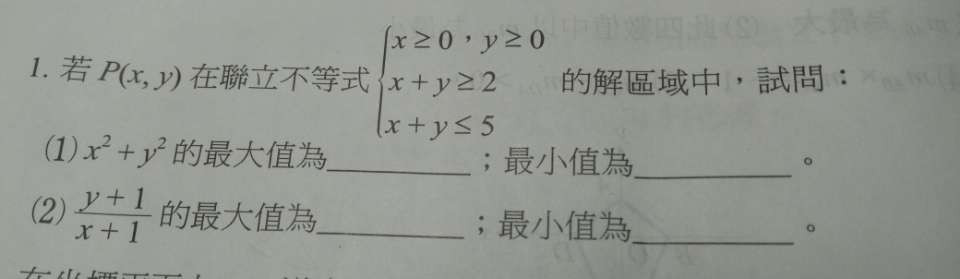 1. 若 P(x, y) 在聯立不等式 { x ≥ 0，y ≥ 0
x + y ≥ 2
x + y ≤ 5 的解區域中，試問：
(1) x² + y² 的最大值為________；最小值為________。
(2) (y + 1)/(x + 1) 的最大值為________；最小值為________。